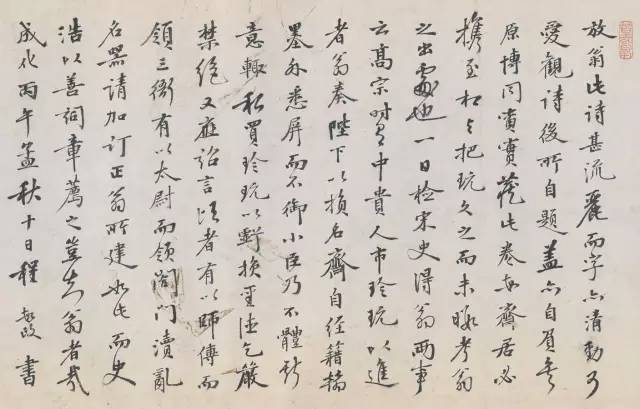 放翁此诗甚流麗而字亦清勁可
愛觀诗後所自题盖亦自負矣
原博同寅寳藏此卷每齋居必
携至相與把玩久之而未暇考翁
之出處也一日检宋史得翁两事
云高宗時中貴人市珍玩以進
者翁奏陛下以损名齋自经籍翰
墨外悉屏而不御小臣乃不體聖
意輙私買珍玩以虧损聖德乞嚴
禁绝又應诏言頃者有以師傅而
領三衙有以太尉而領閤門瀆亂
名器请加订正翁所建如此而史
浩以善词章薦之豈知翁者哉
成化丙午孟秋十日程敏政書